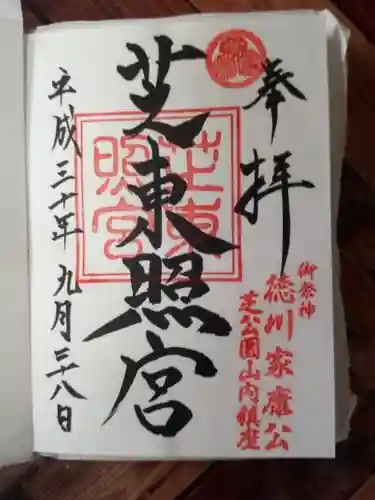 奉拝
御祭神
徳川家康公
芝公園山内鎮座
芝東照宮
芝東照宮
平成三十年九月二十八日